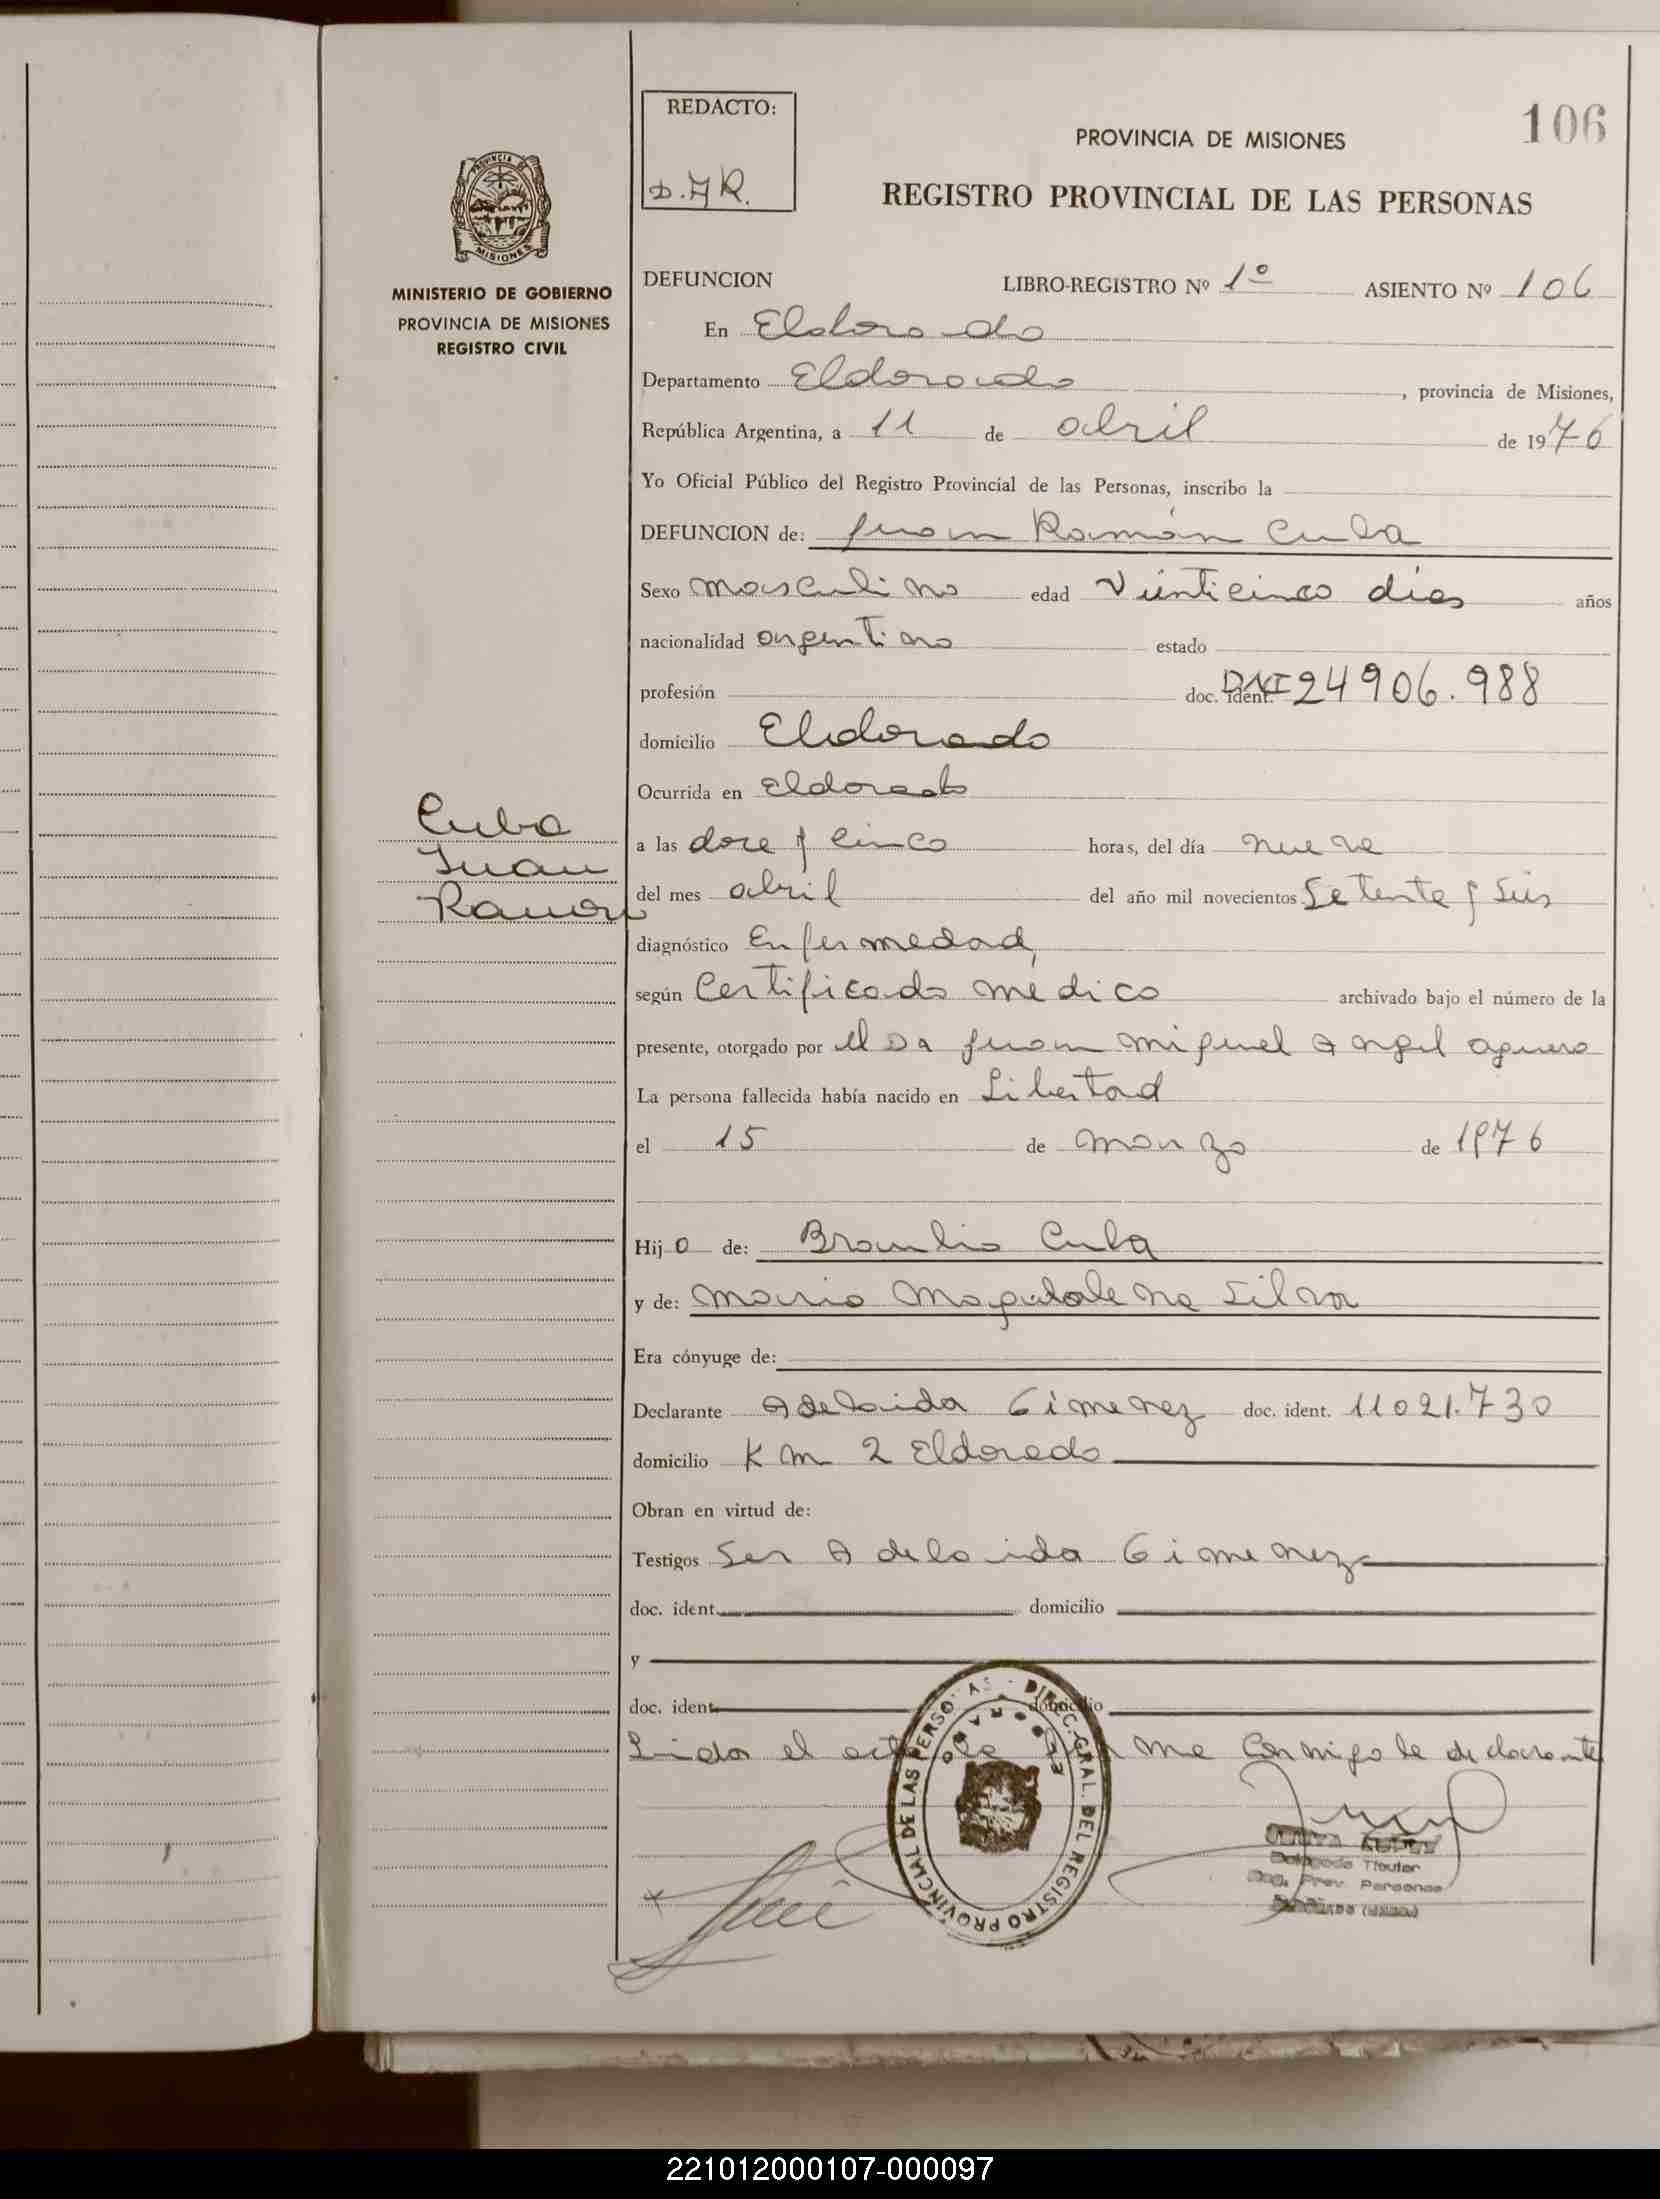 REDACTO:
D.J R.
106
PROVINCIA DE MISIONES
REGISTRO PROVINCIAL DE LAS PERSONAS
PROVINCIA DE
MISIONES
MINISTERIO DE GOBIERNO
PROVINCIA DE MISIONES
REGISTRO CIVIL
DEFUNCION LIBRO-REGISTRO Nº 1º ASIENTO Nº 106
En Eldorado
Departamento Eldorado, provincia de Misiones,
República Argentina, a 11 de abril de 1976
Yo Oficial Público del Registro Provincial de las Personas, inscribo la
DEFUNCION de: Juan Ramón Cuba
Sexo masculino edad Veinticinco días años
nacionalidad argentino estado
profesión doc. ident. DNI 24906.988
domicilio Eldorado
Ocurrida en Eldorado
Cuba
Juan
Ramon
a las doce y cinco horas, del día nueve
del mes abril del año mil novecientos Setenta y Seis
diagnóstico Enfermedad,
según Certificado médico archivado bajo el número de la
presente, otorgado por el Dr Juan Miguel Angel aguero
La persona fallecida había nacido en Libertad
el 15 de marzo de 1976
Hijo de: Braulio Cuba
y de: Maria Magdalena Silva
Era cónyuge de:
Declarante Adelaida Gimenez doc. ident. 11021.730
domicilio Km 2 Eldorado
Obran en virtud de:
Testigos Ser Adelaida Gimenez
doc. ident. domicilio
y
doc. ident. domicilio
Leida el acta la firma conmigo la declarante
DIREC. GRAL. DEL REGISTRO PROVINCIAL DE LAS PERSONAS
ELDORADO
Delegado Titular
Reg. Prov. Personas
221012000107-000097